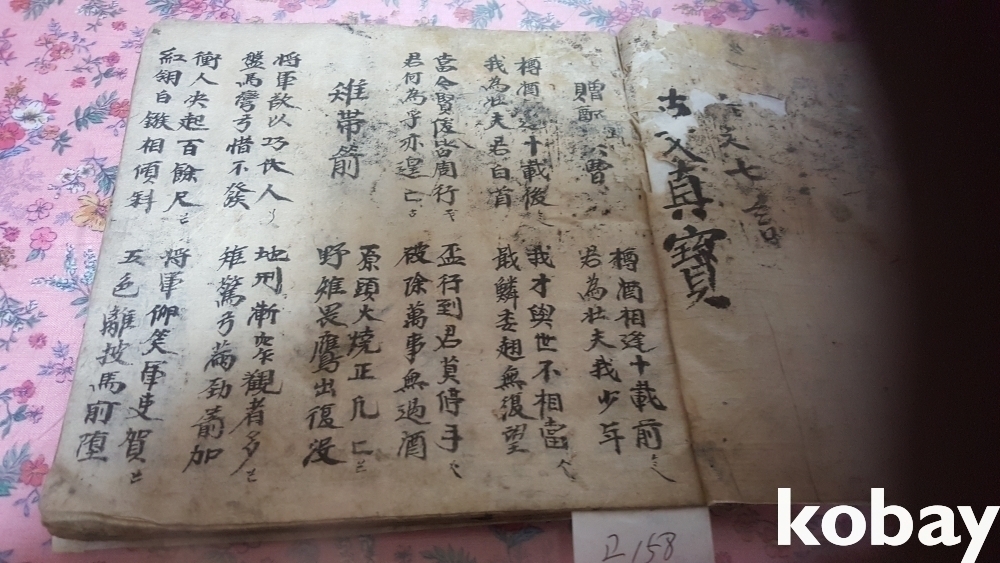 文七言
古文真寶
贈 曹
樽酒相逢十載前
君為壯夫我少年
樽酒 十載後
我為壯夫君白首
我才與世不相當
戢鱗委翅無復望
當今賢俊皆周行
君何為乎亦遑匕
盃行到君莫停手
破除萬事無過酒
雉帶箭
原頭火燒正兀匕
野雉畏鷹出復沒
將軍故以巧伏人
盤馬彎弓惜不發
地形漸窄觀者多
雉驚弓滿勁箭加
衝人决起百餘尺
紅翎白鏃相傾斜
將軍仰笑軍吏賀
五色離披馬前墮
고158
kobay